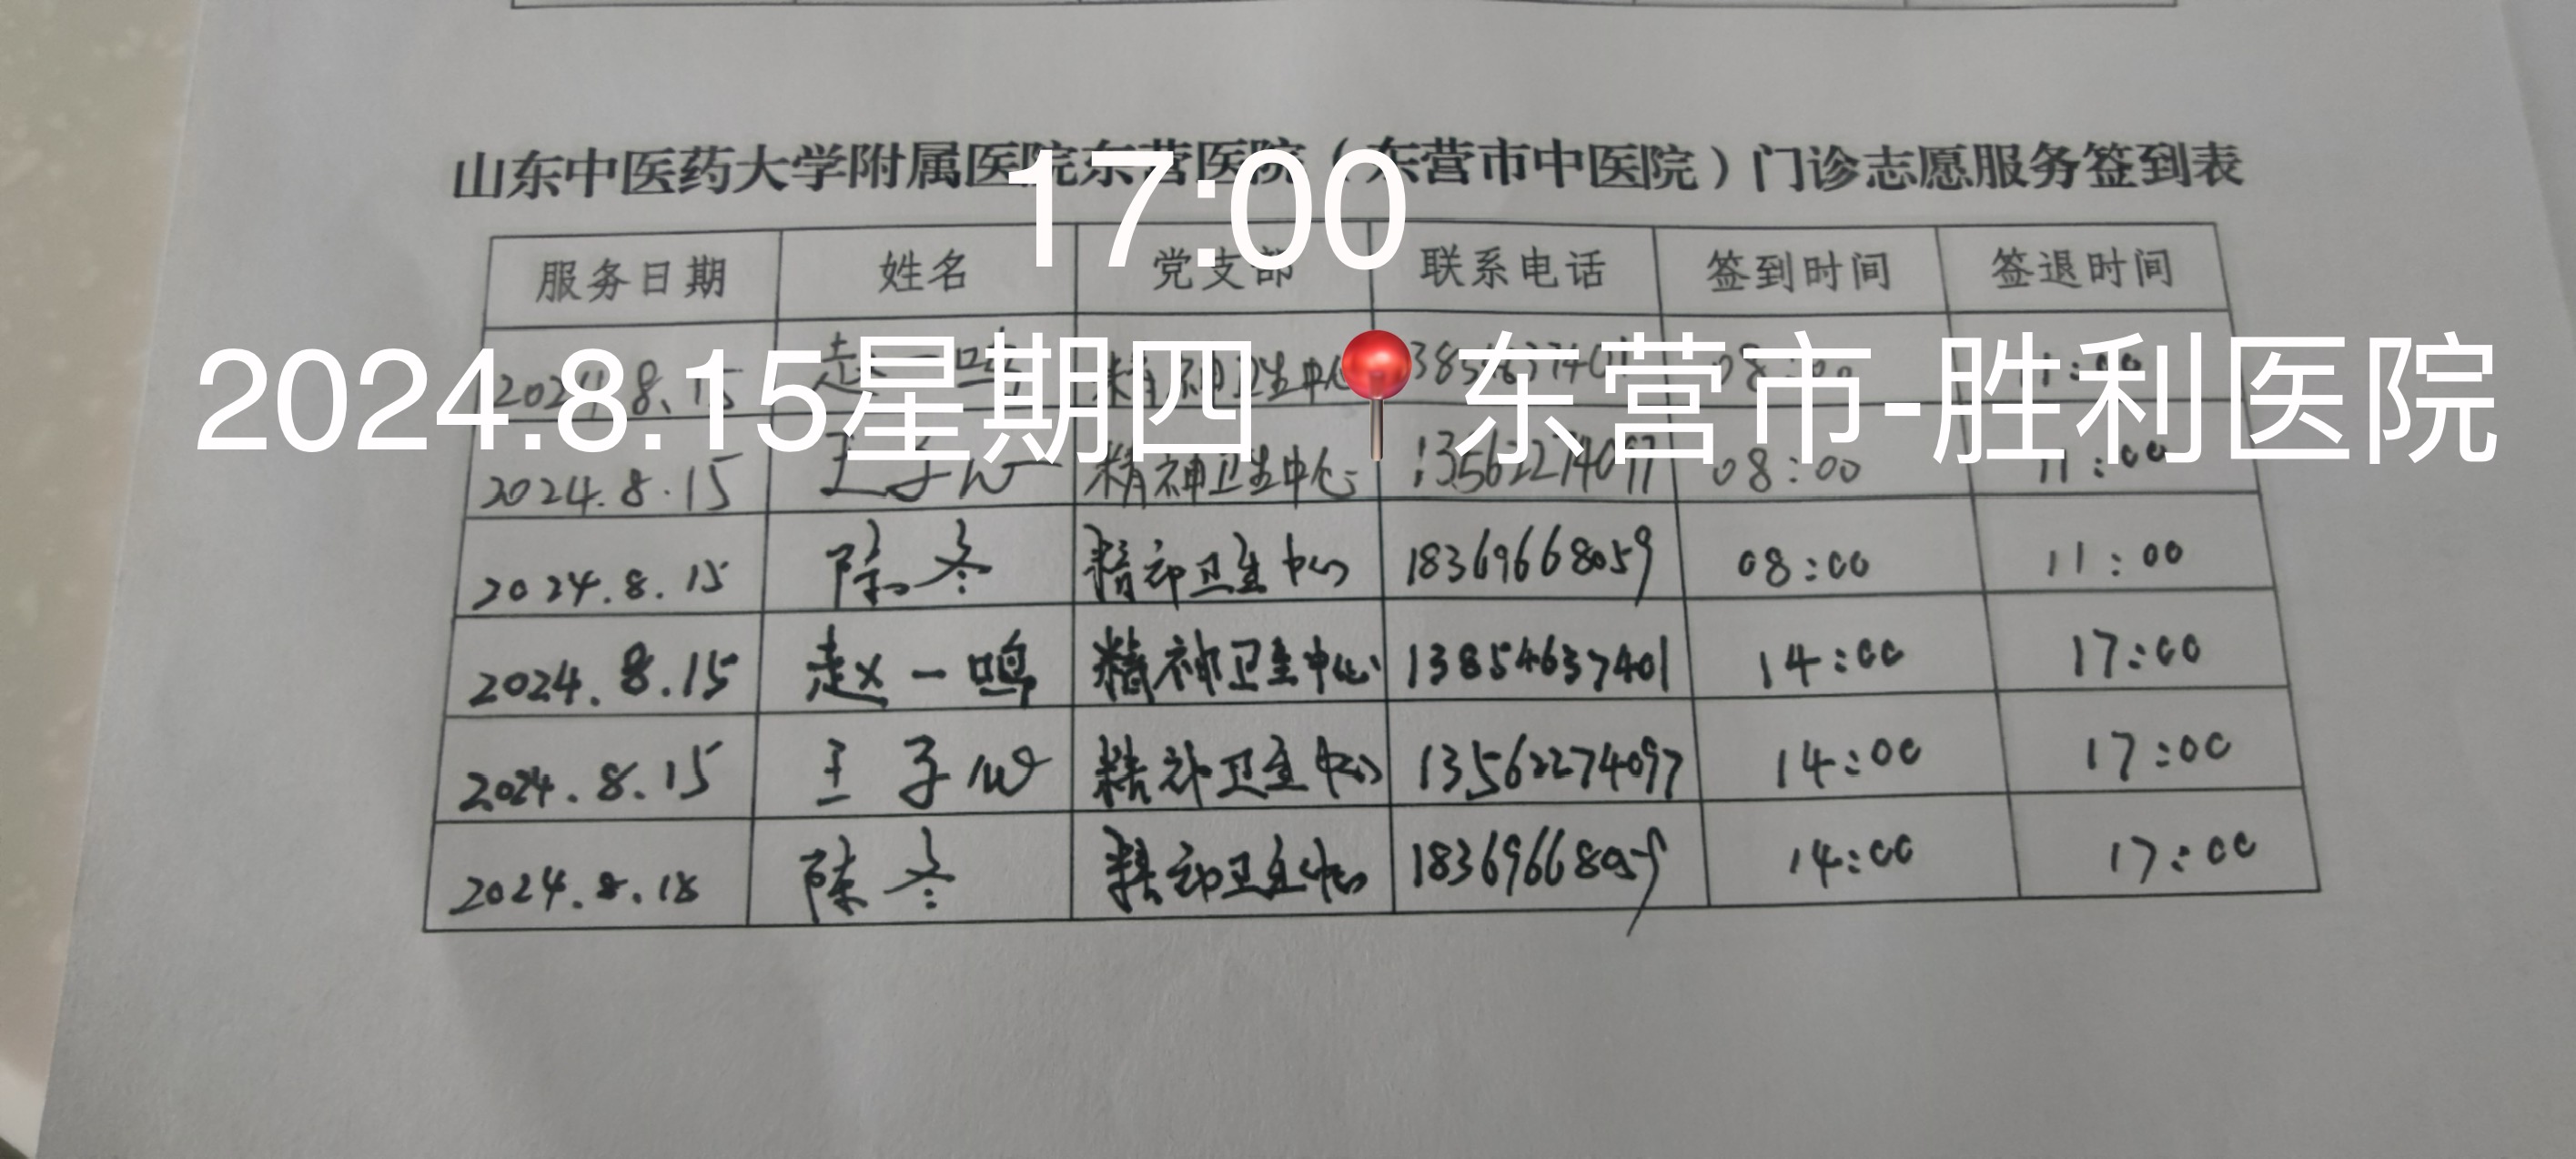 山东中医药大学附属医院东营医院（东营市中医院）门诊志愿服务签到表
17:00
服务日期 姓名 党支部 联系电话 签到时间 签退时间
2024.8.15星期四📍东营市-胜利医院
2024.8.15 赵一鸣 精神卫生中心 13854637401 08:00 11:00
2024.8.15 王子 精神卫生中心 13562274097 08:00 11:00
2024.8.15 陈冬 精神卫生中心 18369668059 08:00 11:00
2024.8.15 赵一鸣 精神卫生中心 13854637401 14:00 17:00
2024.8.15 王子 精神卫生中心 13562274097 14:00 17:00
2024.8.15 陈冬 精神卫生中心 18369668059 14:00 17:00